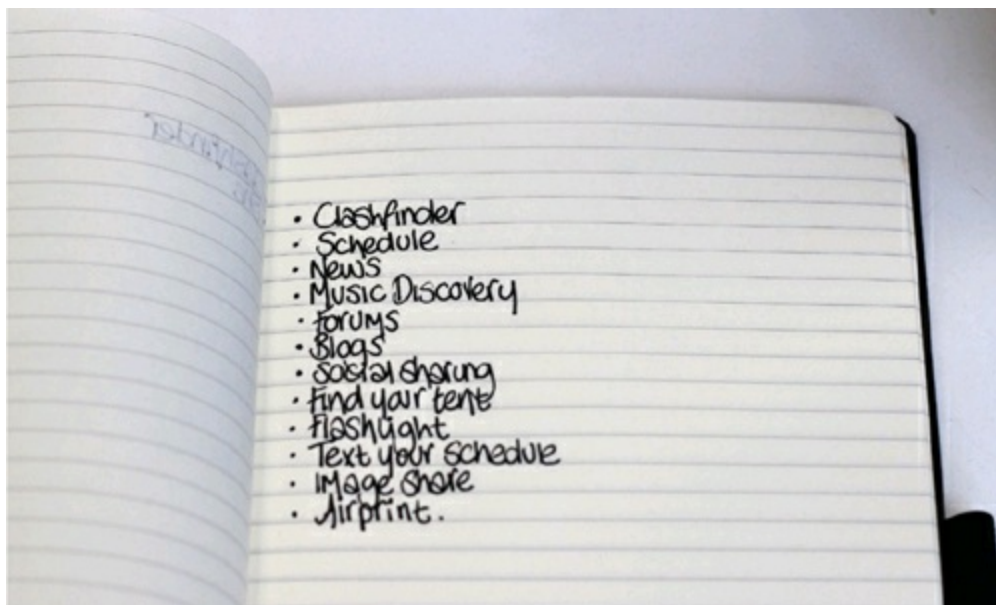 • Clashfinder
• Schedule
• News
• Music Discovery
• Forums
• Blogs
• Social sharing
• Find your tent
• Flashlight
• Text your schedule
• Image share
• Airprint.